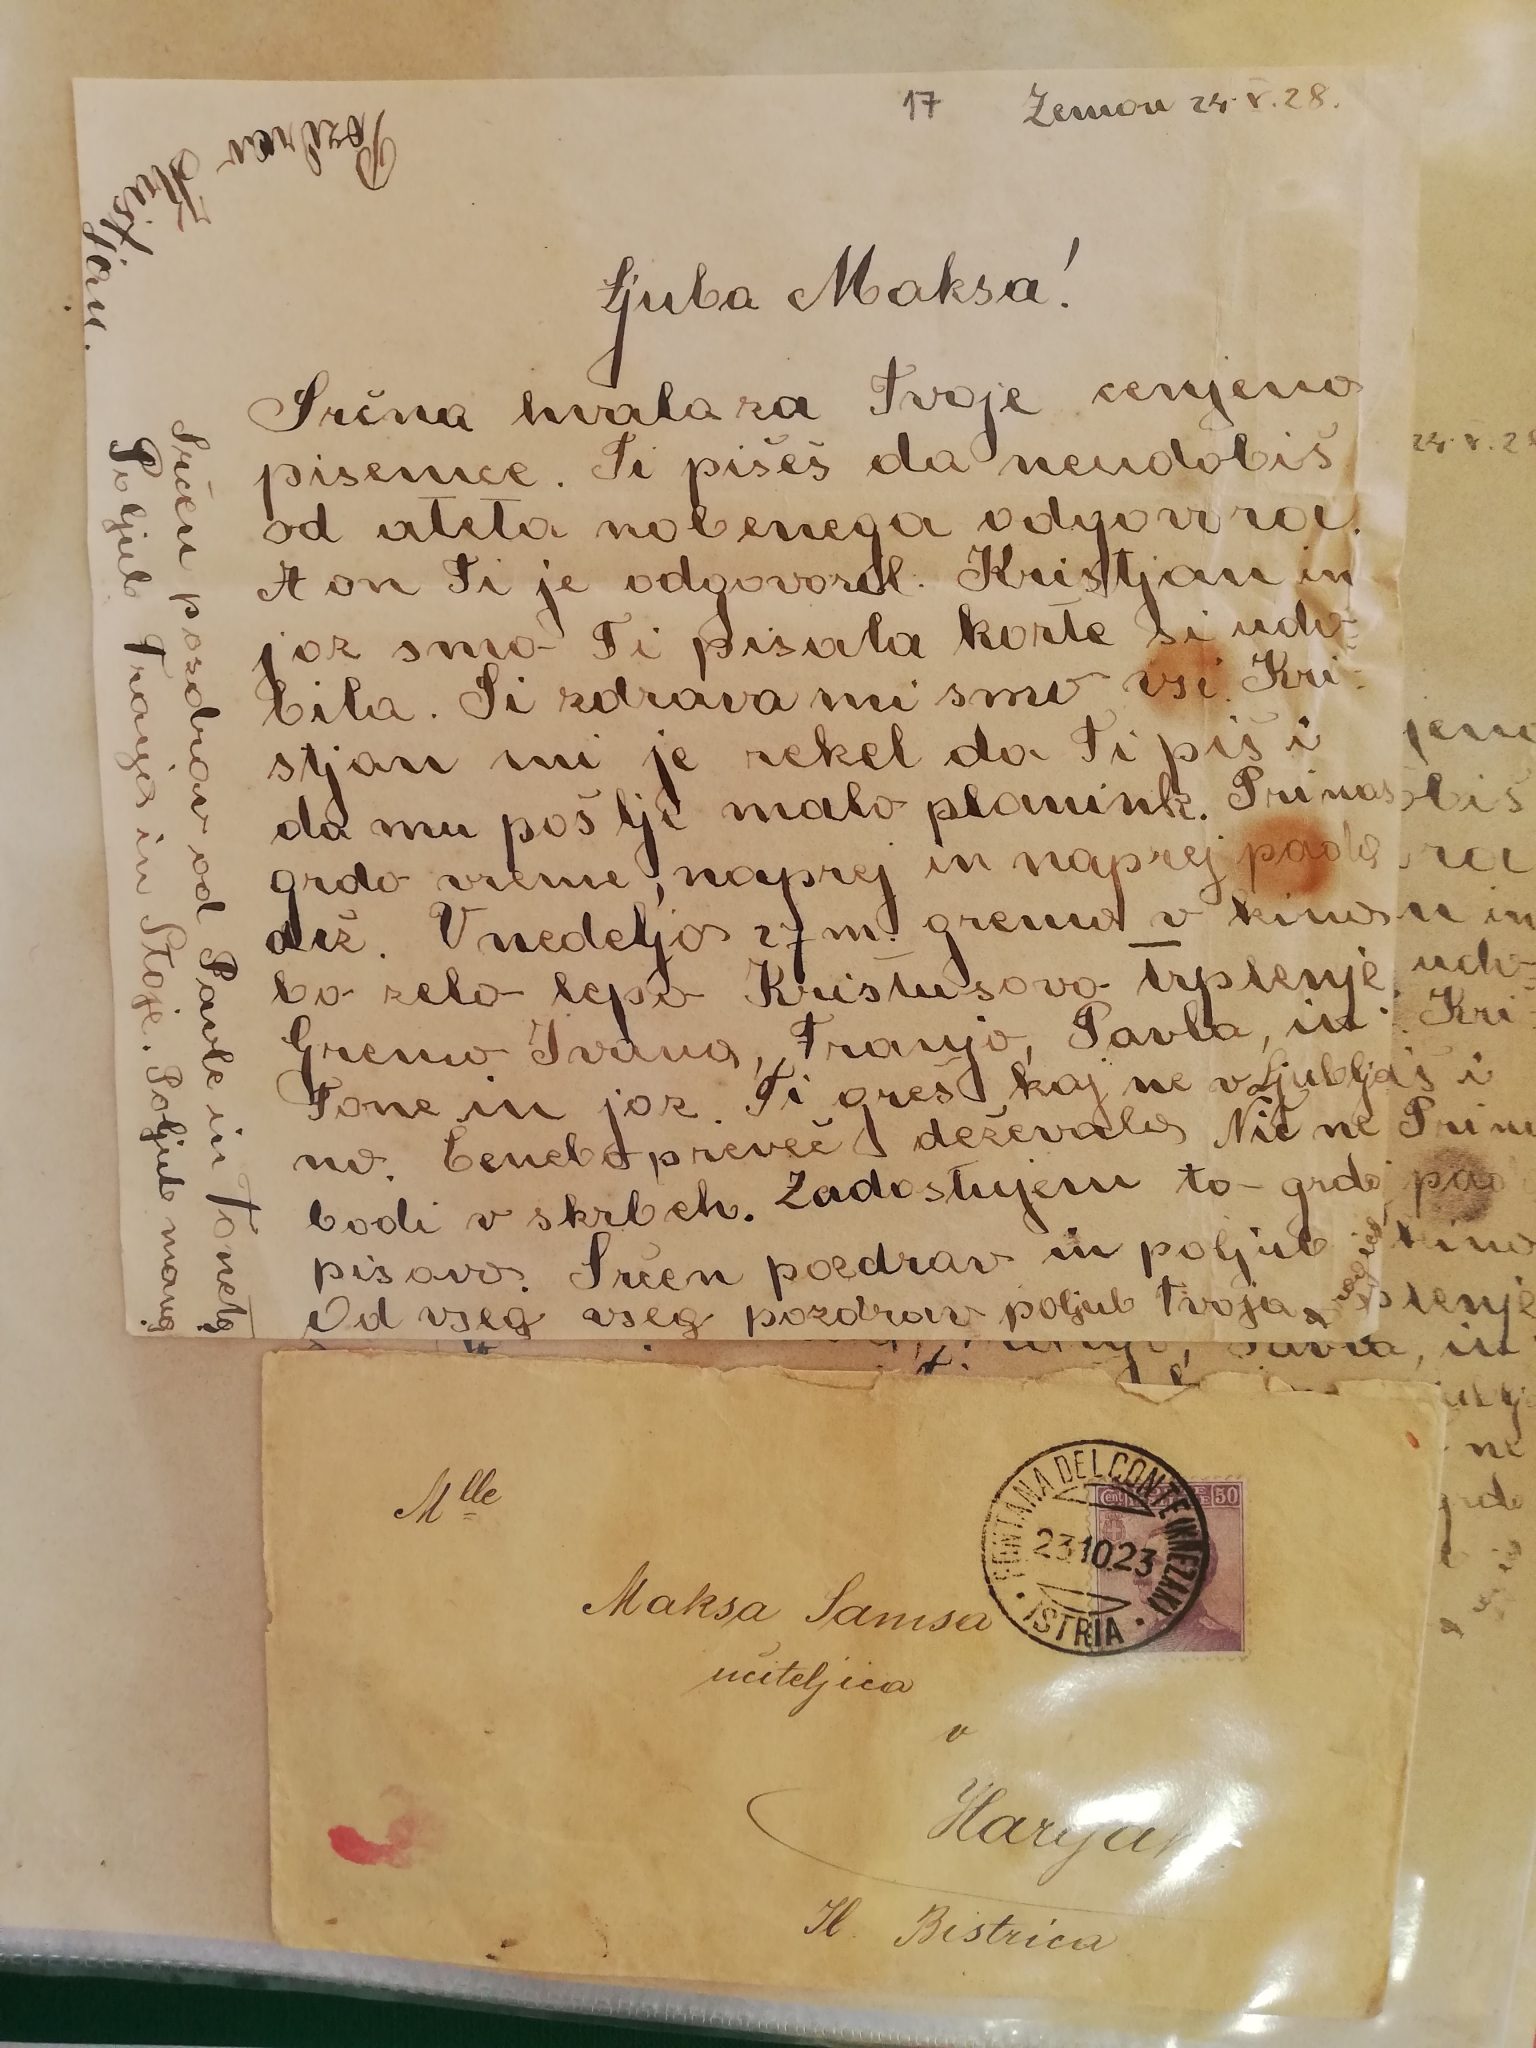 17 Zemon 24.V.28.
Pozdrav Kristjan.
Ljuba Maksa!
Srčna hvala za Tvoje cenjeno
pisemce. Ti pišeš da neudobiš
od ateta nobenega odgovora.
A on Ti je odgovoril. Kristjan in
joz smo Ti pisala korte si udo-
bila. Si zdrava mi smo vsi. Kri-
stjan mi je rekel da Ti piš i
da mu pošlji malo planink. Prinas
grdo vreme, naprej in naprej pada
diž. V nedeljo 27 m. gremo v kino
bo zelo lepo Kristusovo trplenje.
Gremo Ivana, Franjo, Pavla, in
Tone in joz. Ti greš kaj ne v Ljublja
no. Če nebo preveč deževalo Nič ne
bodi v skrbeh. Zadostujem to grdo
pisavo. Srčen pozdrav in poljub
Od vseg vseg pozdrav poljub tvoja
Srčen pozdrav od Pavle in Toneta.
Poljub Franja in Stoje. Poljub mama.
24.V.28
jeno
obiš
ora
n in
udo-
Kri-
š i
Prina
pad
kino
plenje
Pavla, in
ne
grdo
Mlle
Maksa Samsa
učiteljica
v
Harija
Il. Bistrica
FONTANA DEL CONTE (KNEZAK)
23.10.23
ISTRIA
Cent 50